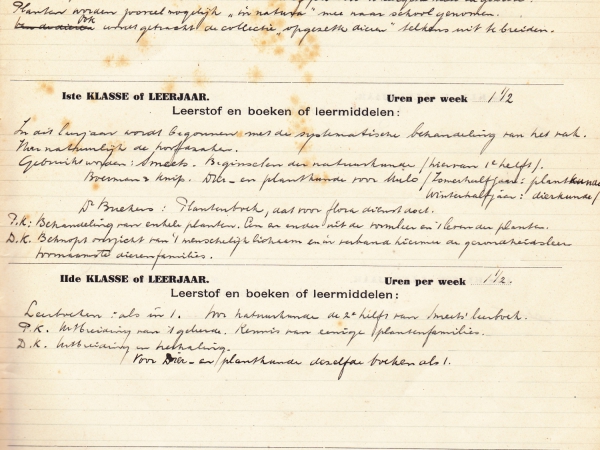 Planten worden zooveel mogelijk "in natura" mee naar school genomen.
wordt getracht de collectie "opgezette dieren" telkens uit te breiden.
Iste KLASSE of LEERJAAR. Uren per week 1 1/2
Leerstof en boeken of leermiddelen:
In dit leerjaar wordt begonnen met de systematische behandeling van het vak.
Hier natuurlijk de hoofdzaken.
Gebruikt worden: Smeets. Beginselen der natuurkunde /hiervan 1e helft/.
Boerman & Knip. Dier- en plantkunde voor Mulo /Zomerhalfjaar: plantkunde
Winterhalfjaar: dierkunde/
Dr Beekers: Plantenboek, dat voor flora dienst doet.
P.K: Behandeling van enkele planten. Een en ander uit de vormleer en 't leven der planten.
D.K. Beknopt overzicht van 't menschelijk lichaam en in verband hiermee de gezondheidsleer
voornaamste dierenfamilies.
IIde KLASSE of LEERJAAR. Uren per week 1 1/2.
Leerstof en boeken of leermiddelen:
Leerboeken: als in 1. Voor natuurkunde de 2e helft van Smeets' leerboek.
P.K. Uitbreiding van 't geleerde. Kennis van eenige plantenfamilies.
D.K. Uitbreiding en herhaling.
Voor Dier- en plantkunde dezelfde boeken als 1.